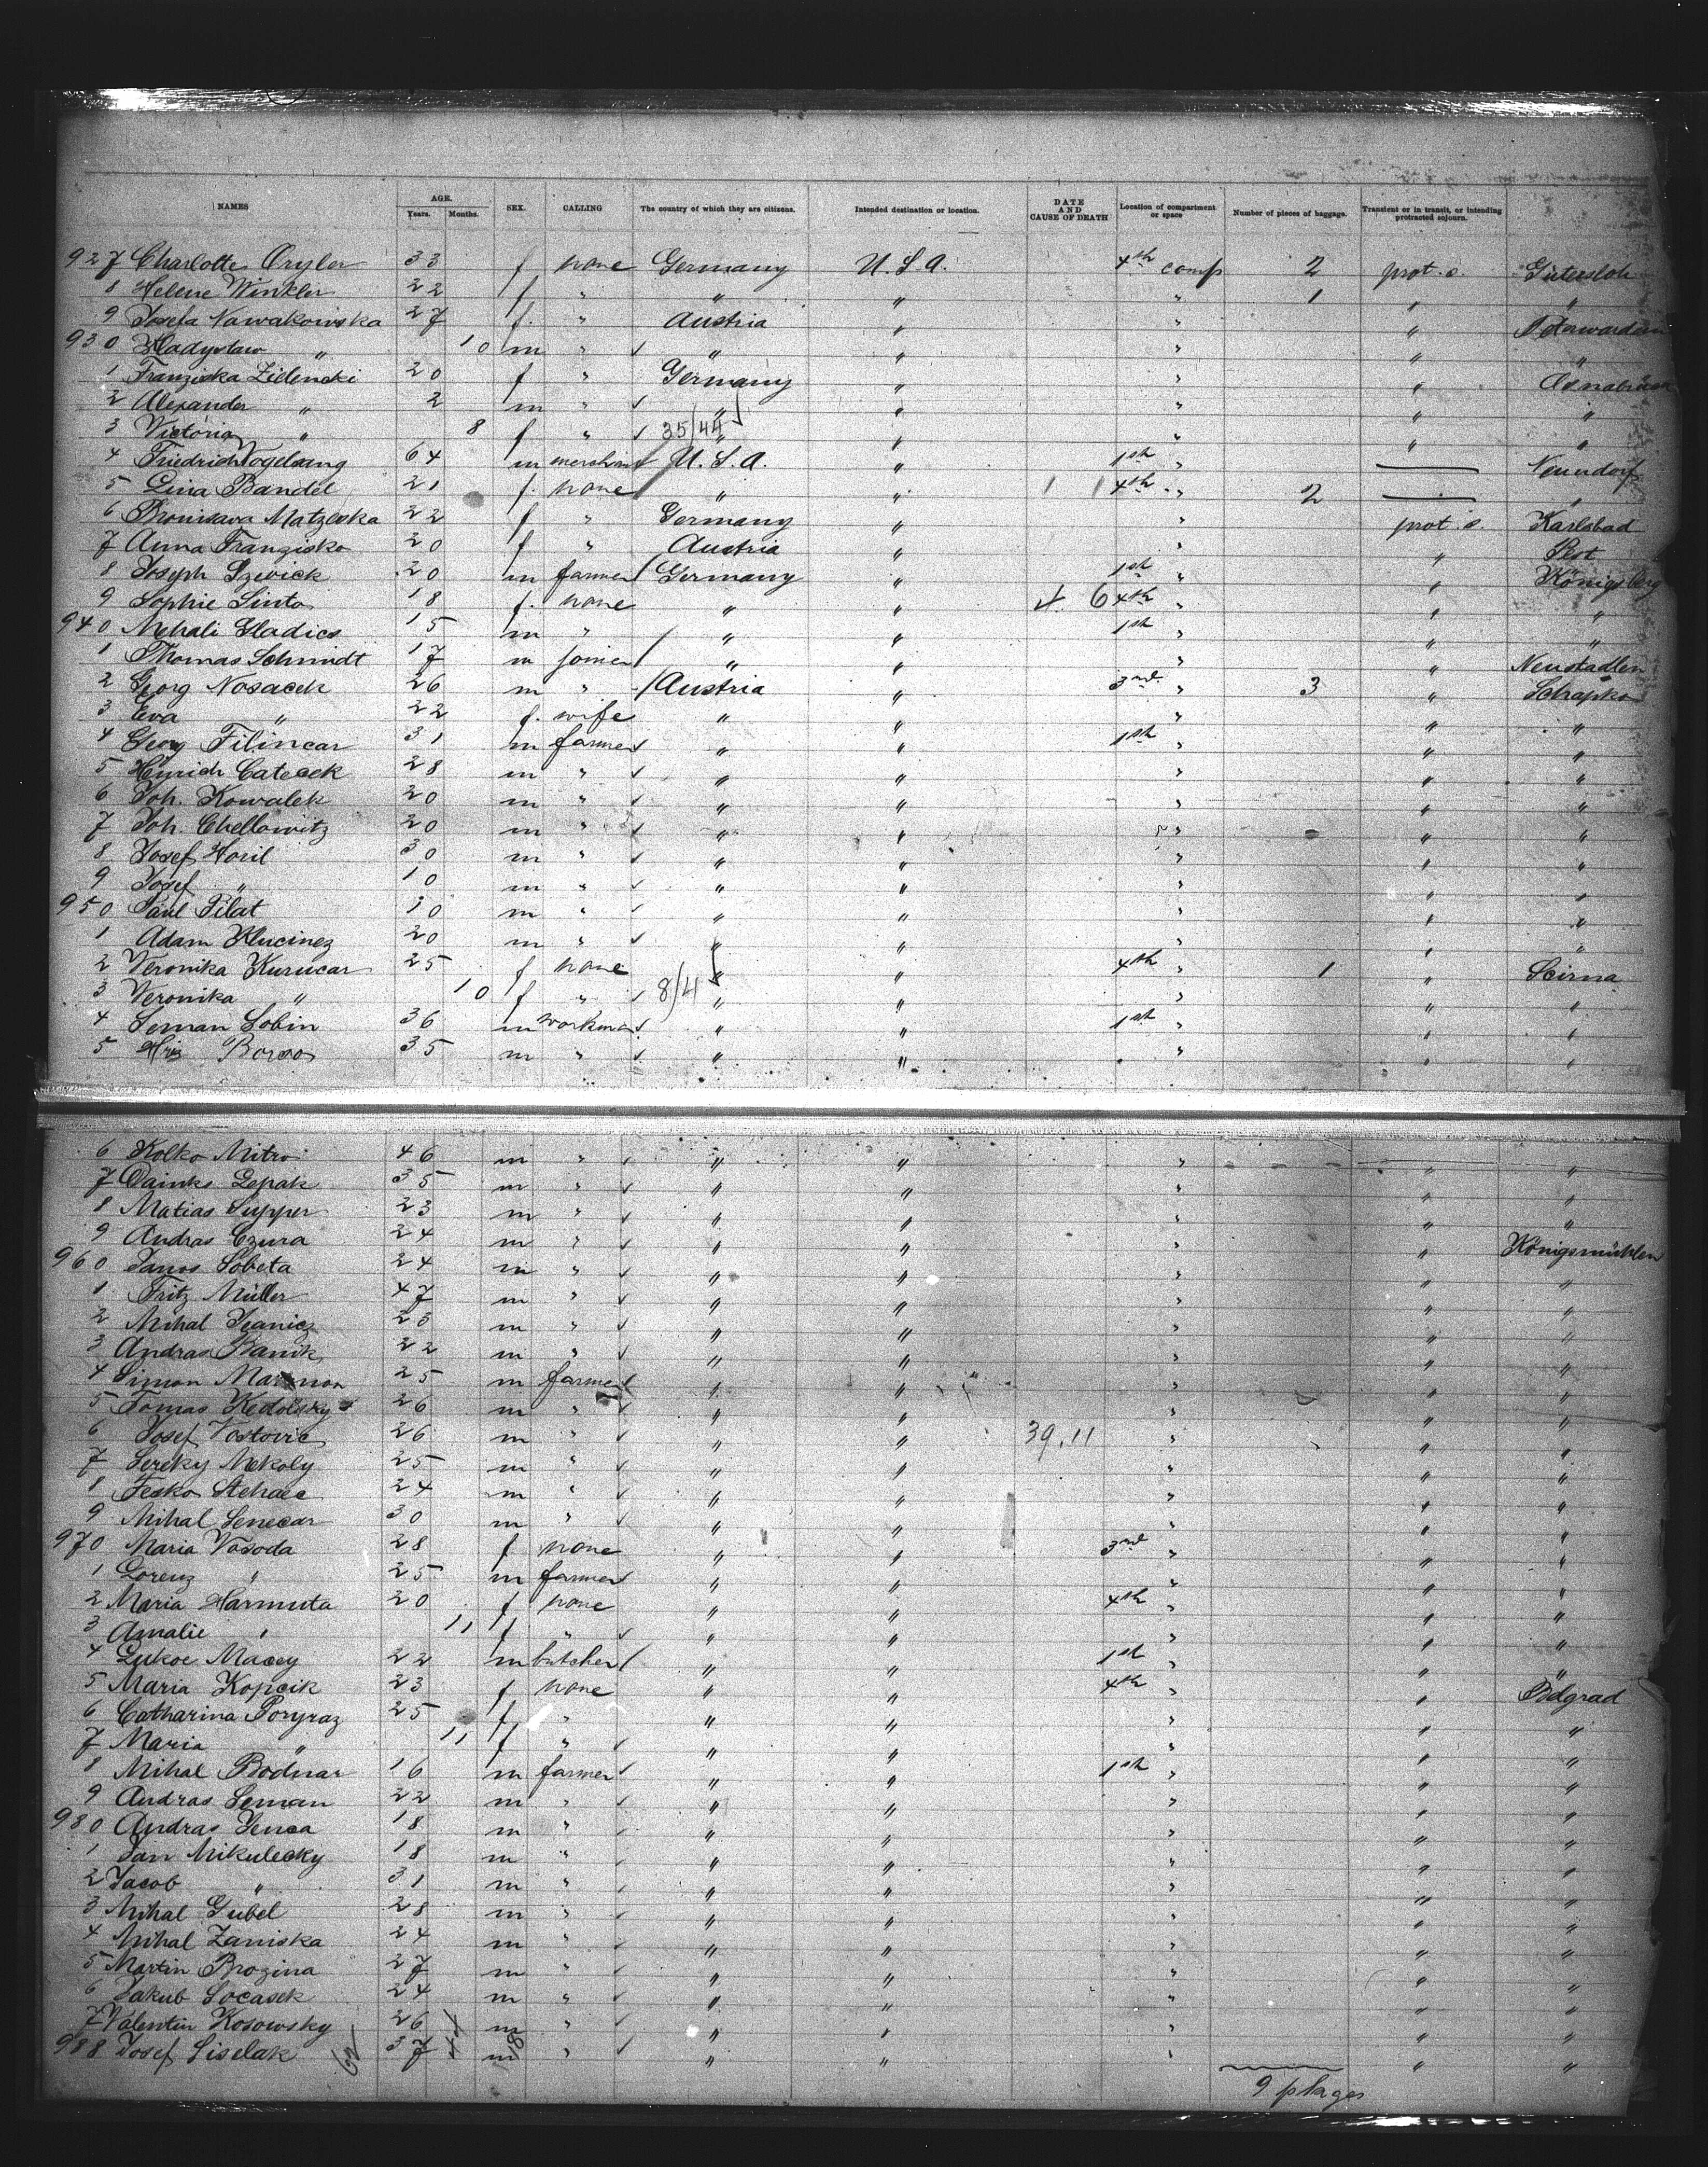 NAMES AGE. Years. Months. SEX. CALLING The country of which they are citizens. Intended destination or location. DATE AND CAUSE OF DEATH Location of compartment or space Number of pieces of baggage. Transient or in transit, or intending protracted sojourn.
927 Charlotte Oryler 33 f none Germany U.S.A. 4th comp 2 prot. s. Gütersloh
8 Helene Winkler 22 f " " " " 1 " "
9 Josefa Nawakowska 27 f. " Austria " " "
930 Wladyslaw " 10 m " ✓ " " " " "
1 Franziska Zielenski 20 f " Germany " " "
2 Alexander " 2 m " ✓ " " " " "
3 Victoria " 8 f " ✓ 35/44 " " " " "
4 Friedrich Vogelsang 64 m merchant U.S.A. " 1st " — Neundorf
5 Lina Bandel 21 f. none " " 4th " 2 — "
6 Bronisava Matzewska 22 f " Germany " " prot s. Karlsbad
7 Anna Franzisko 20 f " Austria " " " Pest
8 Joseph Szevick 20 m farmer / Germany " 1st " " Königsberg
9 Sophie Sinto 18 f. none " " 4. 6 4th " " "
940 Mehali Gladics 15 m " / " " 1st " " "
1 Thomas Schmidt 17 m joiner / " " " " Neustadlen
2 Georg Nosacek 26 m " / Austria " 3rd " 3 " Schapko
3 Eva " 22 f. wife " " " " "
4 Georg Filincar 31 m farmer ✓ " " 1st " " "
5 Heinrich Catecek 28 m " ✓ " " " " "
6 Joh. Kowalek 20 m " ✓ " " " " "
7 Joh. Chellowitz 20 m " ✓ " " " " "
8 Josef Horil 30 m " ✓ " " " " "
9 Josef " 10 m " ✓ " " " " "
950 Paul Pilat 10 m " ✓ " " " " "
1 Adam Hlucinez 20 m " ✓ " " " " "
2 Veronika Kurucar 25 f none " " 4th " 1 " Scirna
3 Veronika " 10 f " ✓ 8/4 " " " " "
4 Seman Sobin 36 m workman ✓ " " 1st " " "
5 Hriz Borsos 35 m " ✓ " " " " "
6 Kolko Mitro 46 m " ✓ " " " " "
7 Dainko Lepak 35 m " ✓ " " " " "
8 Matias Supper 23 m " ✓ " " " " "
9 Andras Czura 24 m " ✓ " " " " Königsmühlen
960 Janos Sobeta 24 m " ✓ " " " " "
1 Fritz Müller 47 m " ✓ " " " " "
2 Mihal Ivanicz 23 m " ✓ " " " " "
3 Andras Banik 22 m " ✓ " " " " "
4 Simon 25 m farmer ✓ " " " " "
5 Tomas Kedolsky 26 m " ✓ " " " " "
6 Josef Vostovic 26 m " ✓ " " 39.11 " " "
7 Sereky Mekoly 25 m " ✓ " " " " "
8 Fesko Stehaec 24 m " ✓ " " " " "
9 Mihal Senecar 30 m " ✓ " " " " "
970 Maria Vosoda 28 f none " " 3rd " " "
1 Lorenz " 25 m farmer ✓ " " " " "
2 Maria Harmuta 20 f none " " 4th " " "
3 Amalie " 11 f " ✓ " " " " "
4 Lukoe Macey 22 m butcher / " " 1st " " "
5 Maria Kopcik 23 f none " " 4th " " Belgrad
6 Catharina Poryraz 25 f " " " " " "
7 Maria " 11 f " ✓ " " " " "
8 Mihal Bodnar 16 m farmer ✓ " " 1st " " "
9 Andras Seman 22 m " ✓ " " " " "
980 Andras Jenca 18 m " ✓ " " " " "
1 Jan Mikulecky 18 m " ✓ " " " " "
2 Jacob " 31 m " ✓ " " " " "
3 Mihal Gubel 28 m " ✓ " " " " "
4 Mihal Zaniska 24 m " ✓ " " " " "
5 Martin Brozina 27 m " ✓ " " " "
6 Jakub Socasek 24 m " ✓ " " " " "
7 Valentin Kosowsky 26 m " ✓ " " " " "
988 Josef Siselak 37 m " ✓ " " " " "
62 44 18
9 plages